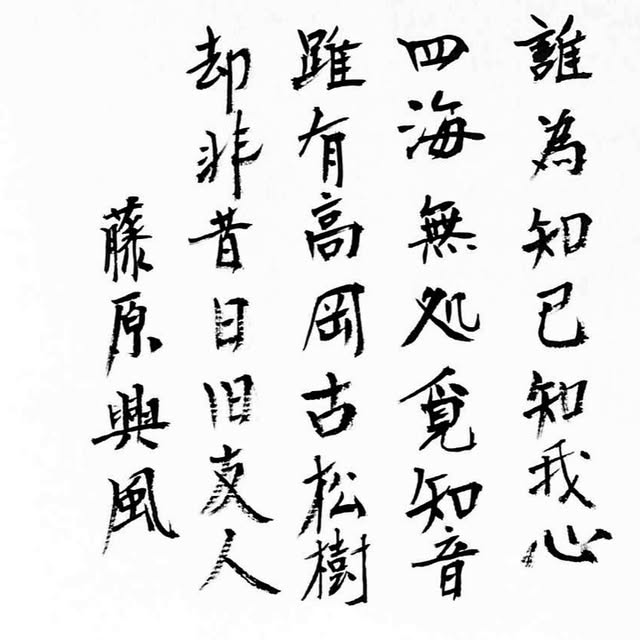 誰為知己知我心
四海無処覓知音
雖有高岡古松樹
却非昔日旧友人
藤原興風